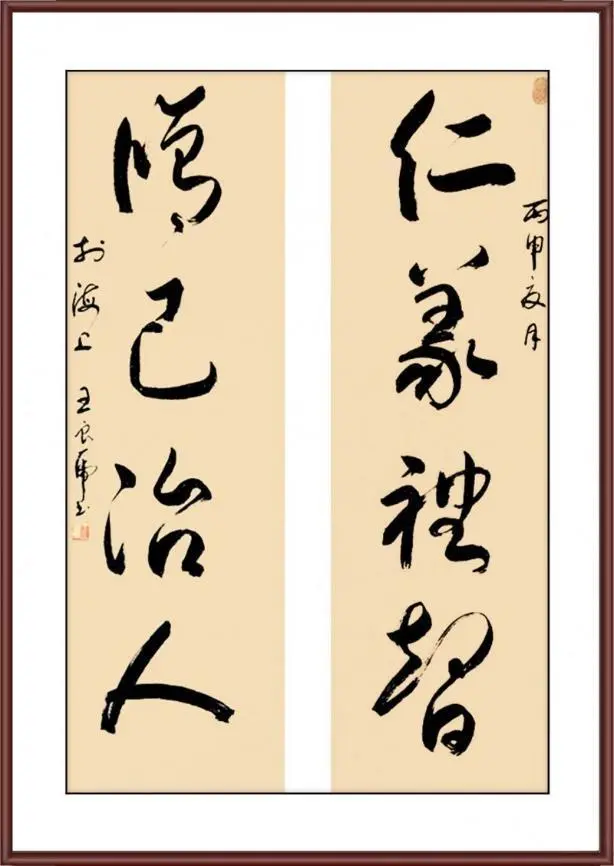 丙申夏月
仁義禮智
脩己治人
於海上 王良書